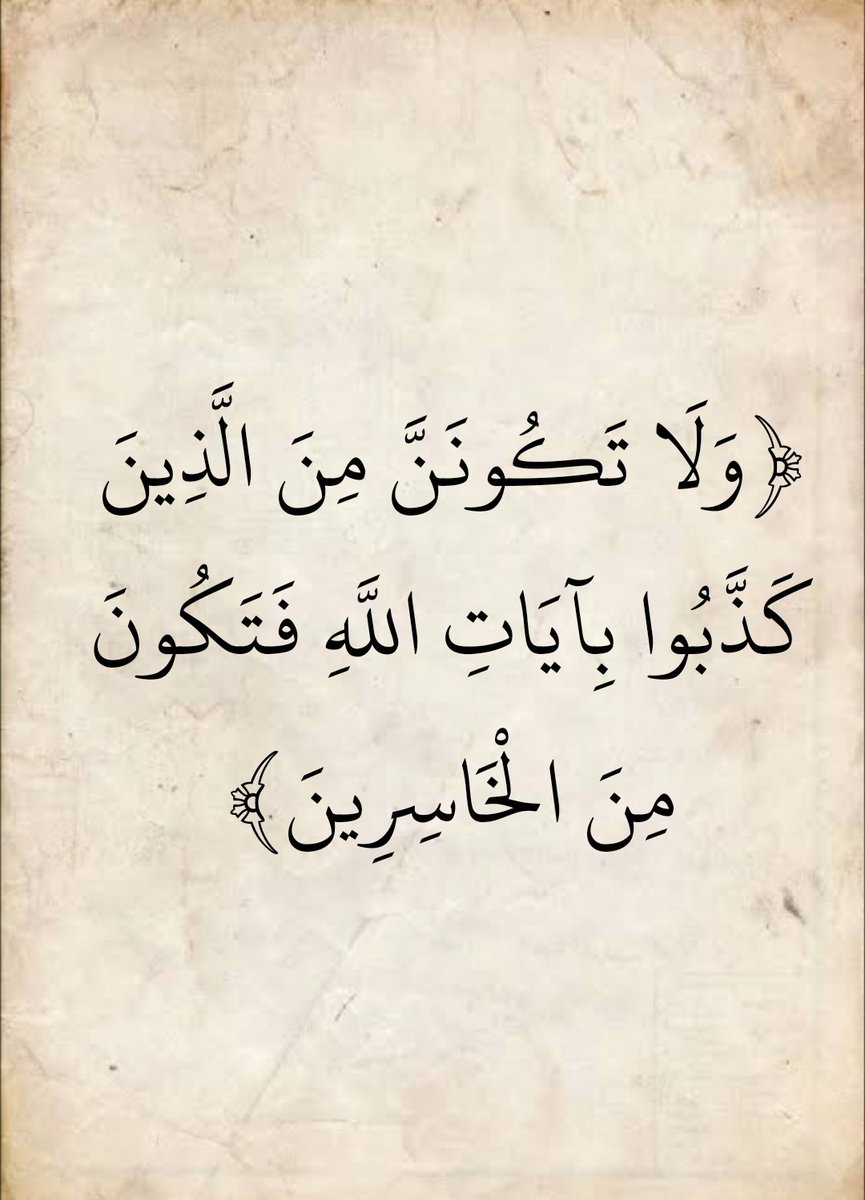 ﴿وَلَا تَكُونَنَّ مِنَ الَّذِينَ
كَذَّبُوا بِآيَاتِ اللَّهِ فَتَكُونَ
مِنَ الْخَاسِرِينَ﴾